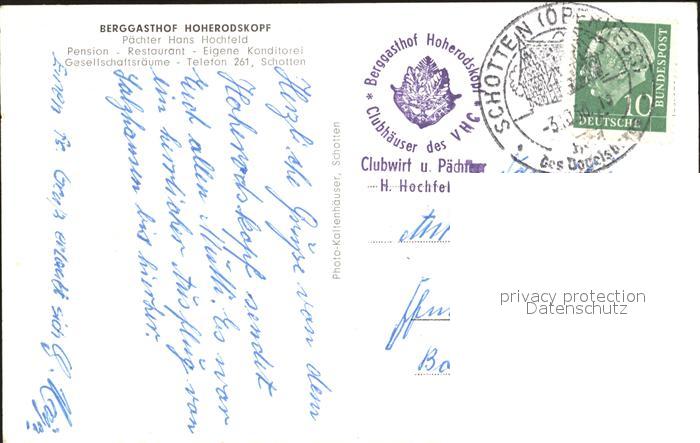 BERGGASTHOF HOHERODSKOPF
Pächter Hans Hochfeld
Pension - Restaurant - Eigene Konditorei
Gesellschaftsräume - Telefon 261, Schotten
Herzliche Grüße von dem
Hoherodskopf sendet
Euch allen Mutti. Es war
ein herrlicher Ausflug von
Salzhausen bis hierher.
Photo-Kaltenhäuser, Schotten
* Berggasthof Hoherodskopf *
Clubhäuser des VHC
Clubwirt u. Pächter
H. Hochfel
SCHOTTEN (OBERHESS)
des Vogelsb
DEUTSCHE
BUNDESPOST
10
privacy protection
Datenschutz